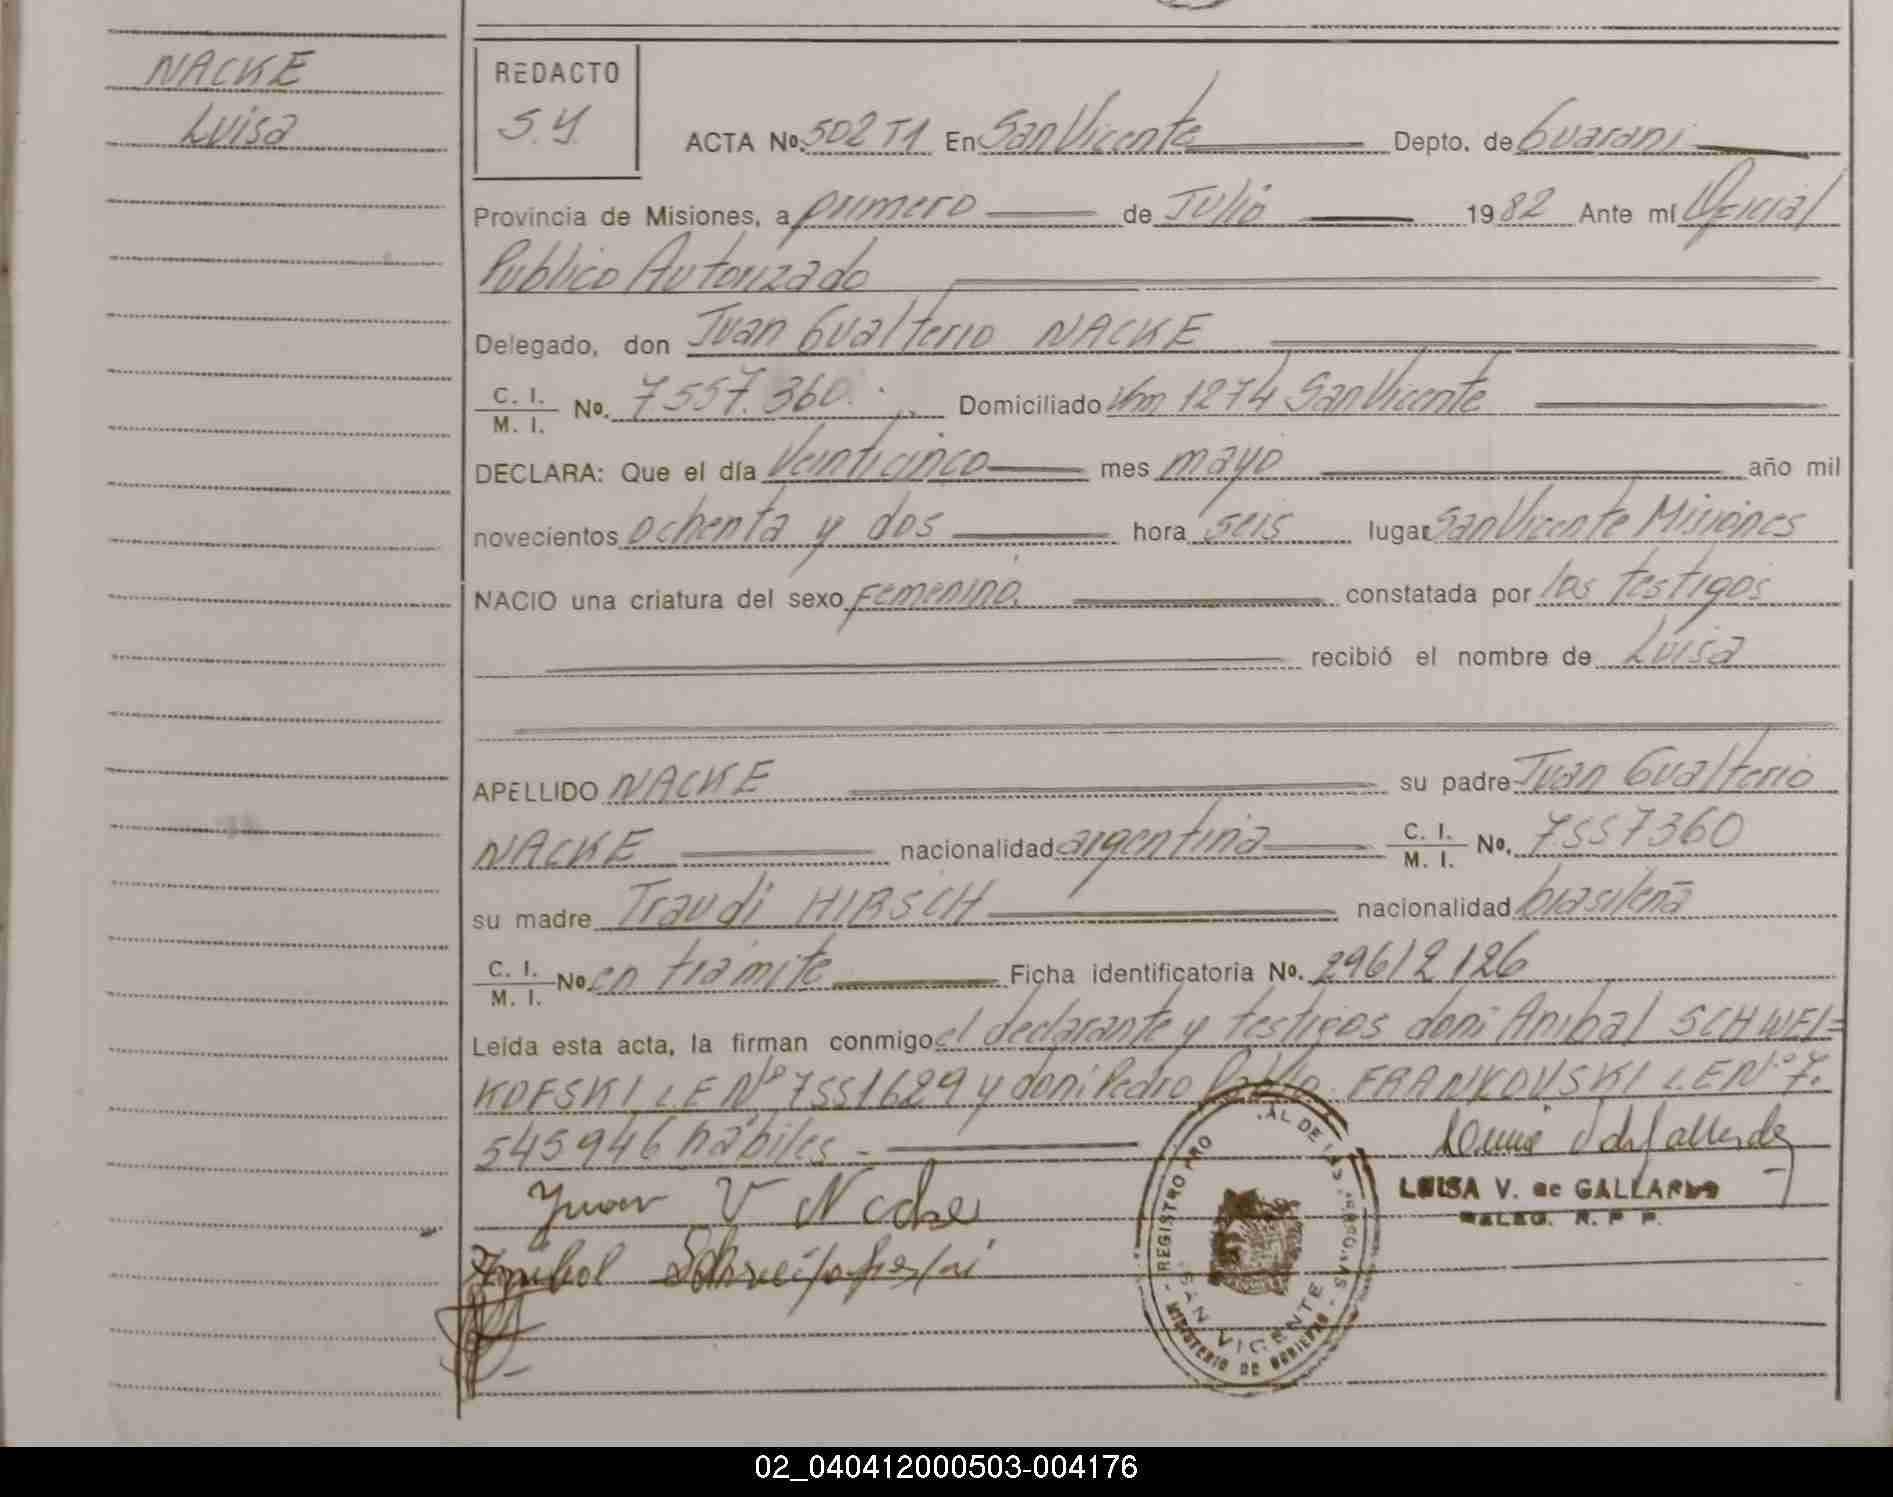 NACKE
Luisa
REDACTO
S.Y.
ACTA No. 502 T1 En San Vicente Depto. de Guarani
Provincia de Misiones, a primero de Julio 1982 Ante mí Oficial
Publico Autorizado
Delegado, don Juan Gualterio NACKE
C. I. / M. I. No. 7557.360 Domiciliado Km 1274 San Vicente
DECLARA: Que el día Veinticinco mes mayo año mil
novecientos ochenta y dos hora seis lugar San Vicente Misiones
NACIO una criatura del sexo femenino constatada por los testigos
recibió el nombre de Luisa
APELLIDO NACKE su padre Juan Gualterio
NACKE nacionalidad argentina C. I. / M. I. No. 7557360
su madre Traudi HIRSCH nacionalidad brasileña
C. I. / M. I. No. en trámite Ficha identificatoria No. 29612126
Leída esta acta, la firman conmigo el declarante y testigos don: Anibal SCHWEI=
KOFSKI L.E Nº 7551629 y don: Pedro Pablo FRANKOVSKI L.E Nº 7.
545946 hábiles.-
Juan V Nacke
Anibal
LUISA V. de GALLARDO
REGISTRO PRO AL DE LAS
SAN VICENTE
MINISTERIO DE GOBIERNO
02_040412000503-004176